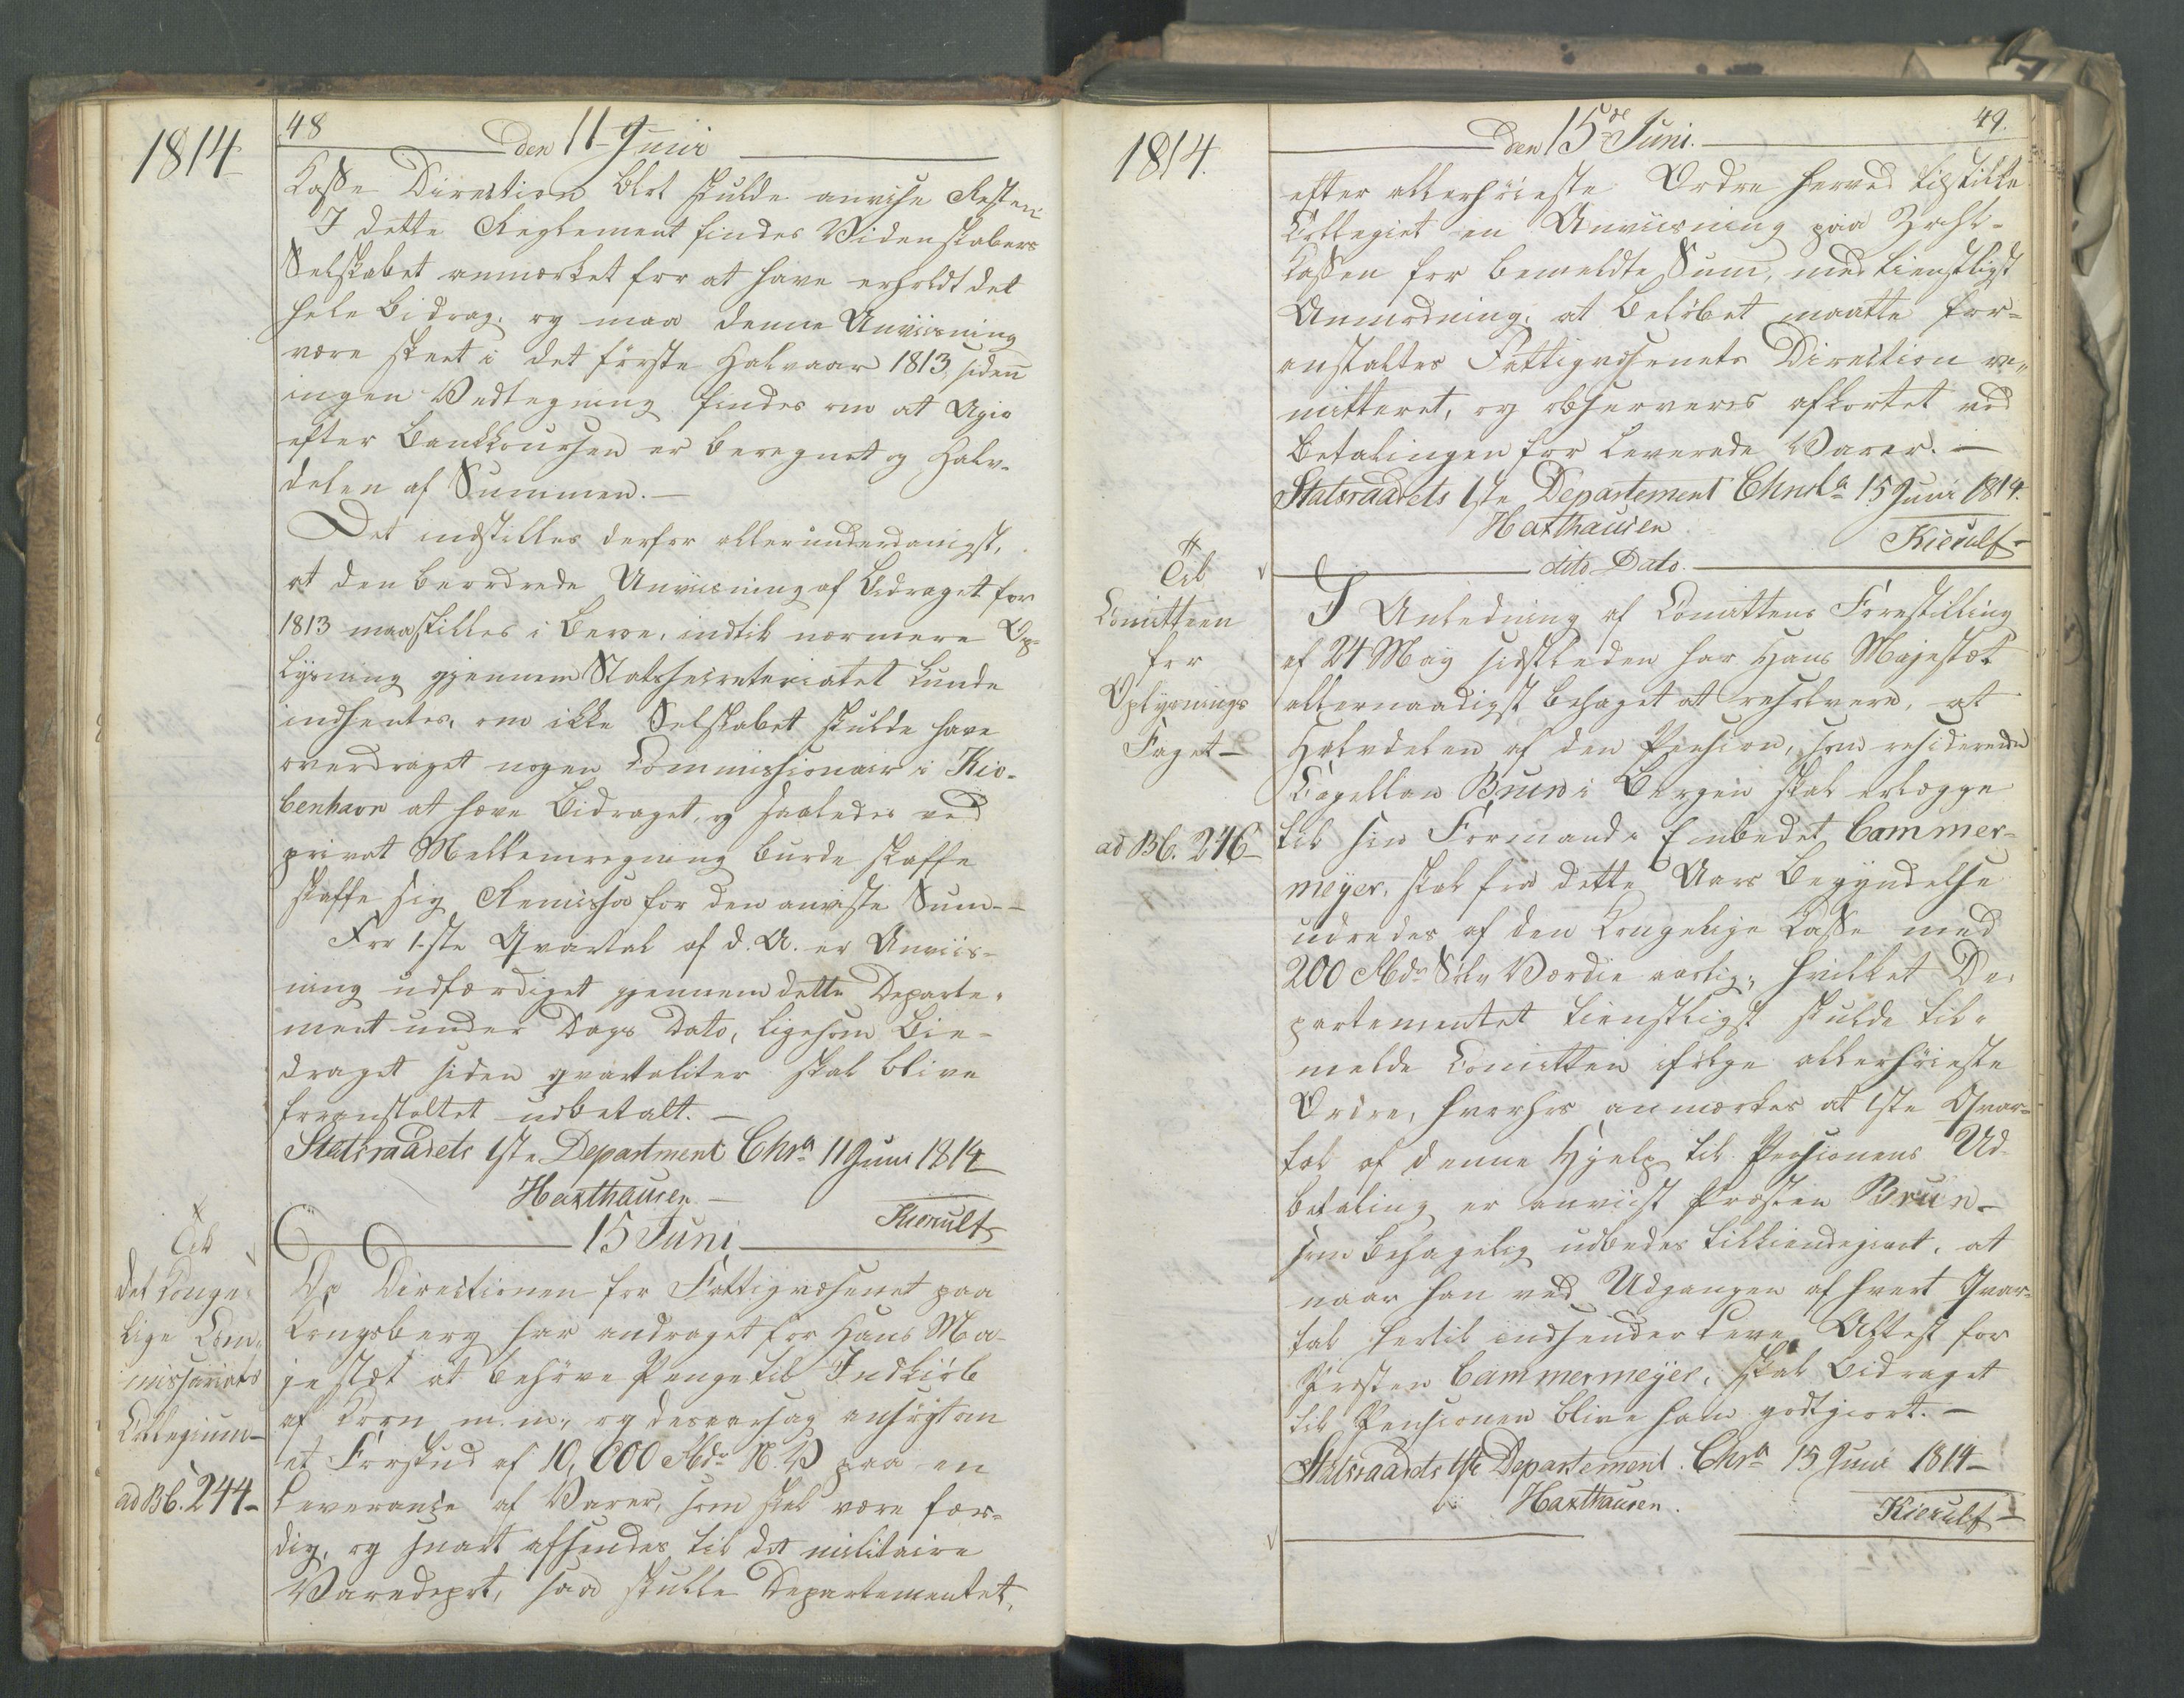 1814
48
den 11 Junii
Casse Direction blot skulde anvise Resten
I dette Reglement findes Videnskabers
Selskabet anmærket for at have erholdt det
hele Bidrag, og maa denne Anviisning
være skeet i det første Halvaar 1813, siden
ingen Vedtegning findes om at Agio
efter Bankkoursen er beregnet og Halv-
delen af Summen. —
Det indstilles derfor allerunderdanigst,
at den beordrede Anviisning af Bidraget for
1813 maa stilles i Beroe, indtil nærmere Op-
lysning gjennem Statssecreteriatet kunde
indhentes, om ikke Selskabet skulde have
overdraget nogen Commissionair i Kio-
benhavn at hæve Bidraget, og saaledes ved
privat Mellemregning burde skaffe
skaffe sig Remisse for den anviste Sum —
For 1-ste Qvartal af d. A. er Anviis-
ning udfærdiget gjennem dette Departe-
ment under Dags Dato, ligesom Bie-
draget siden qvartaliter skal blive
foranstaltet udbetalt. —
Statsraadets 1ste Departement Chra 11 Juni 1814
Haxthausen —
Kierulf
15 Juni
Til
det Konge-
lige Com-
missariats
Collegium —
ad Bb. 244 —
Da Directionen for Fattigvæsenet paa
Kongsberg har andraget for Hans Ma-
jestæt at behøve Penge til Indkiøb
af Korn m. m., og desaarsag ansøgt om
et Forskud af 10,000 Rbdr N. V. paa en
Leverance af Varer, som skal være fær-
dig, og snart afsendes til det militaire
Varedepot, saa skulle Departementet,
1814.
49.
den 15de Juni.
efter allerhøieste Ordre herved tilstille
Collegiet en Anviisning paa Zahl-
Cassen for bemeldte Sum, med tienstligst
Anmodning, at Beløbet maatte for-
anstaltes Fattigvæsenets Direction re-
mitteret, og observeres afkortet ved
Betalingen for leverede Varer. —
Statsraadets 1ste Departement Chra 15 Juni 1814.
Haxthausen
Kierulf —
dito Dato.
Til
Comitteen
for
Oplysnings
Faget —
ad Bb. 246 —
I Anledning af Comittens Forestilling
af 24 May sidstleden har Hans Majestæt
allernaadigst behaget at resolvere, at
Halvdelen af den Pension, som residerende
Capellan Brun i Bergen skal erlægge
til sin Formand i Embedet Cammer-
meyer, skal fra dette Aars Begyndelse
udredes af den Kongelige Casse med
200 Rbdr Sølv Værdie aarlig, hvilket De-
partementet tienstligst skulde til-
melde Comitten ifølge allerhøieste
Ordre, hvorhos anmærkes at 1ste Qvar-
tal af denne Hjelp til Pensionens Ud-
betaling er anviist Præsten Brun —
som behagelig udbedes tilkiendegivet, at
naar han ved Udgangen af hvert Qvar-
tal hertil indsender Leve Attest for
Præsten Cammermeyer, skal Bidraget
til Pensionen blive ham godtgiort. —
Statsraadets 1ste Departement. Chra 15 Juni 1814 —
Haxthausen.
Kierulf —